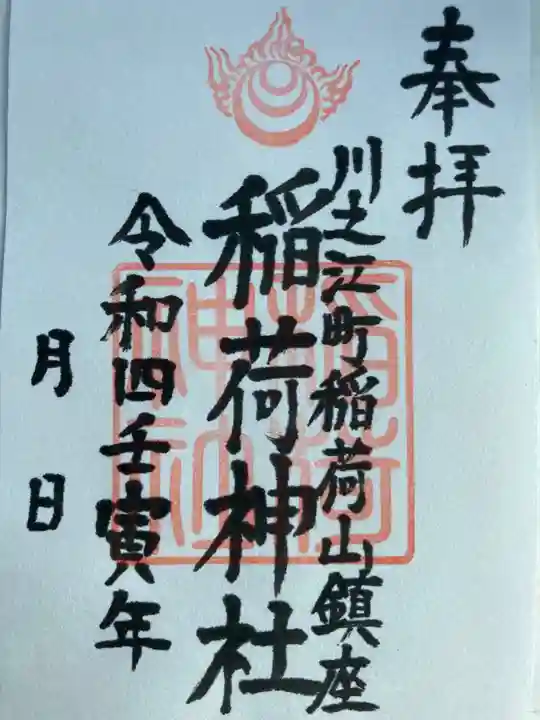 奉拝
川之江町稲荷山鎮座
稲荷神社
令和四壬寅年
月日
稲荷
神社